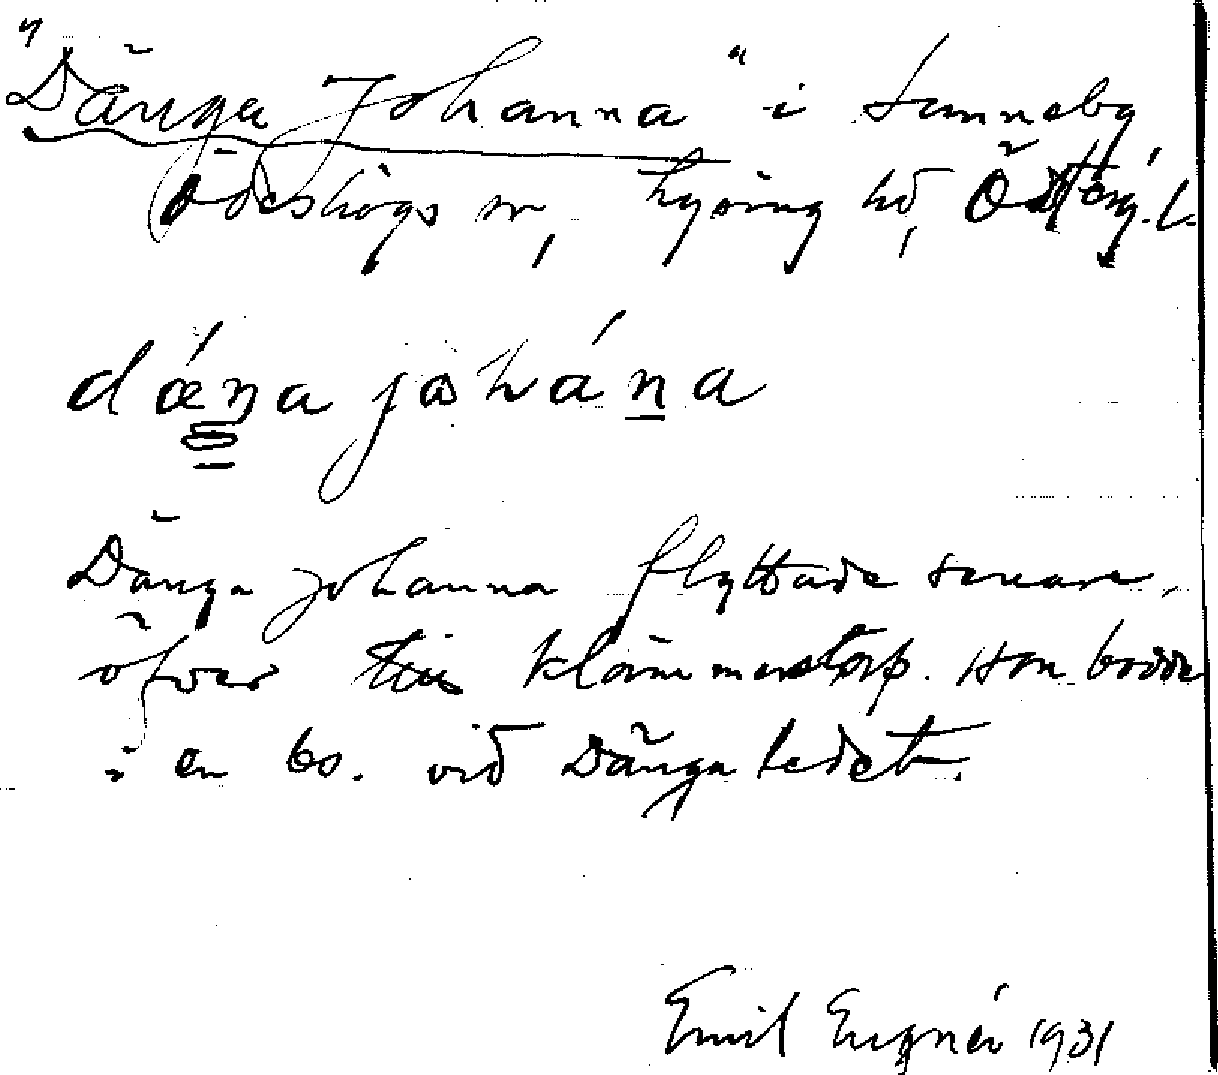 "Dänga Johanna" i Sunneby
Ödeshögs sn, Lysing hd, Östergötl.
dǽŋa johána
Dänga Johanna flyttade senare
öfver till Klämmestorp. Hon bodde
i en bs. vid Dänga ledet.
Emil 1931